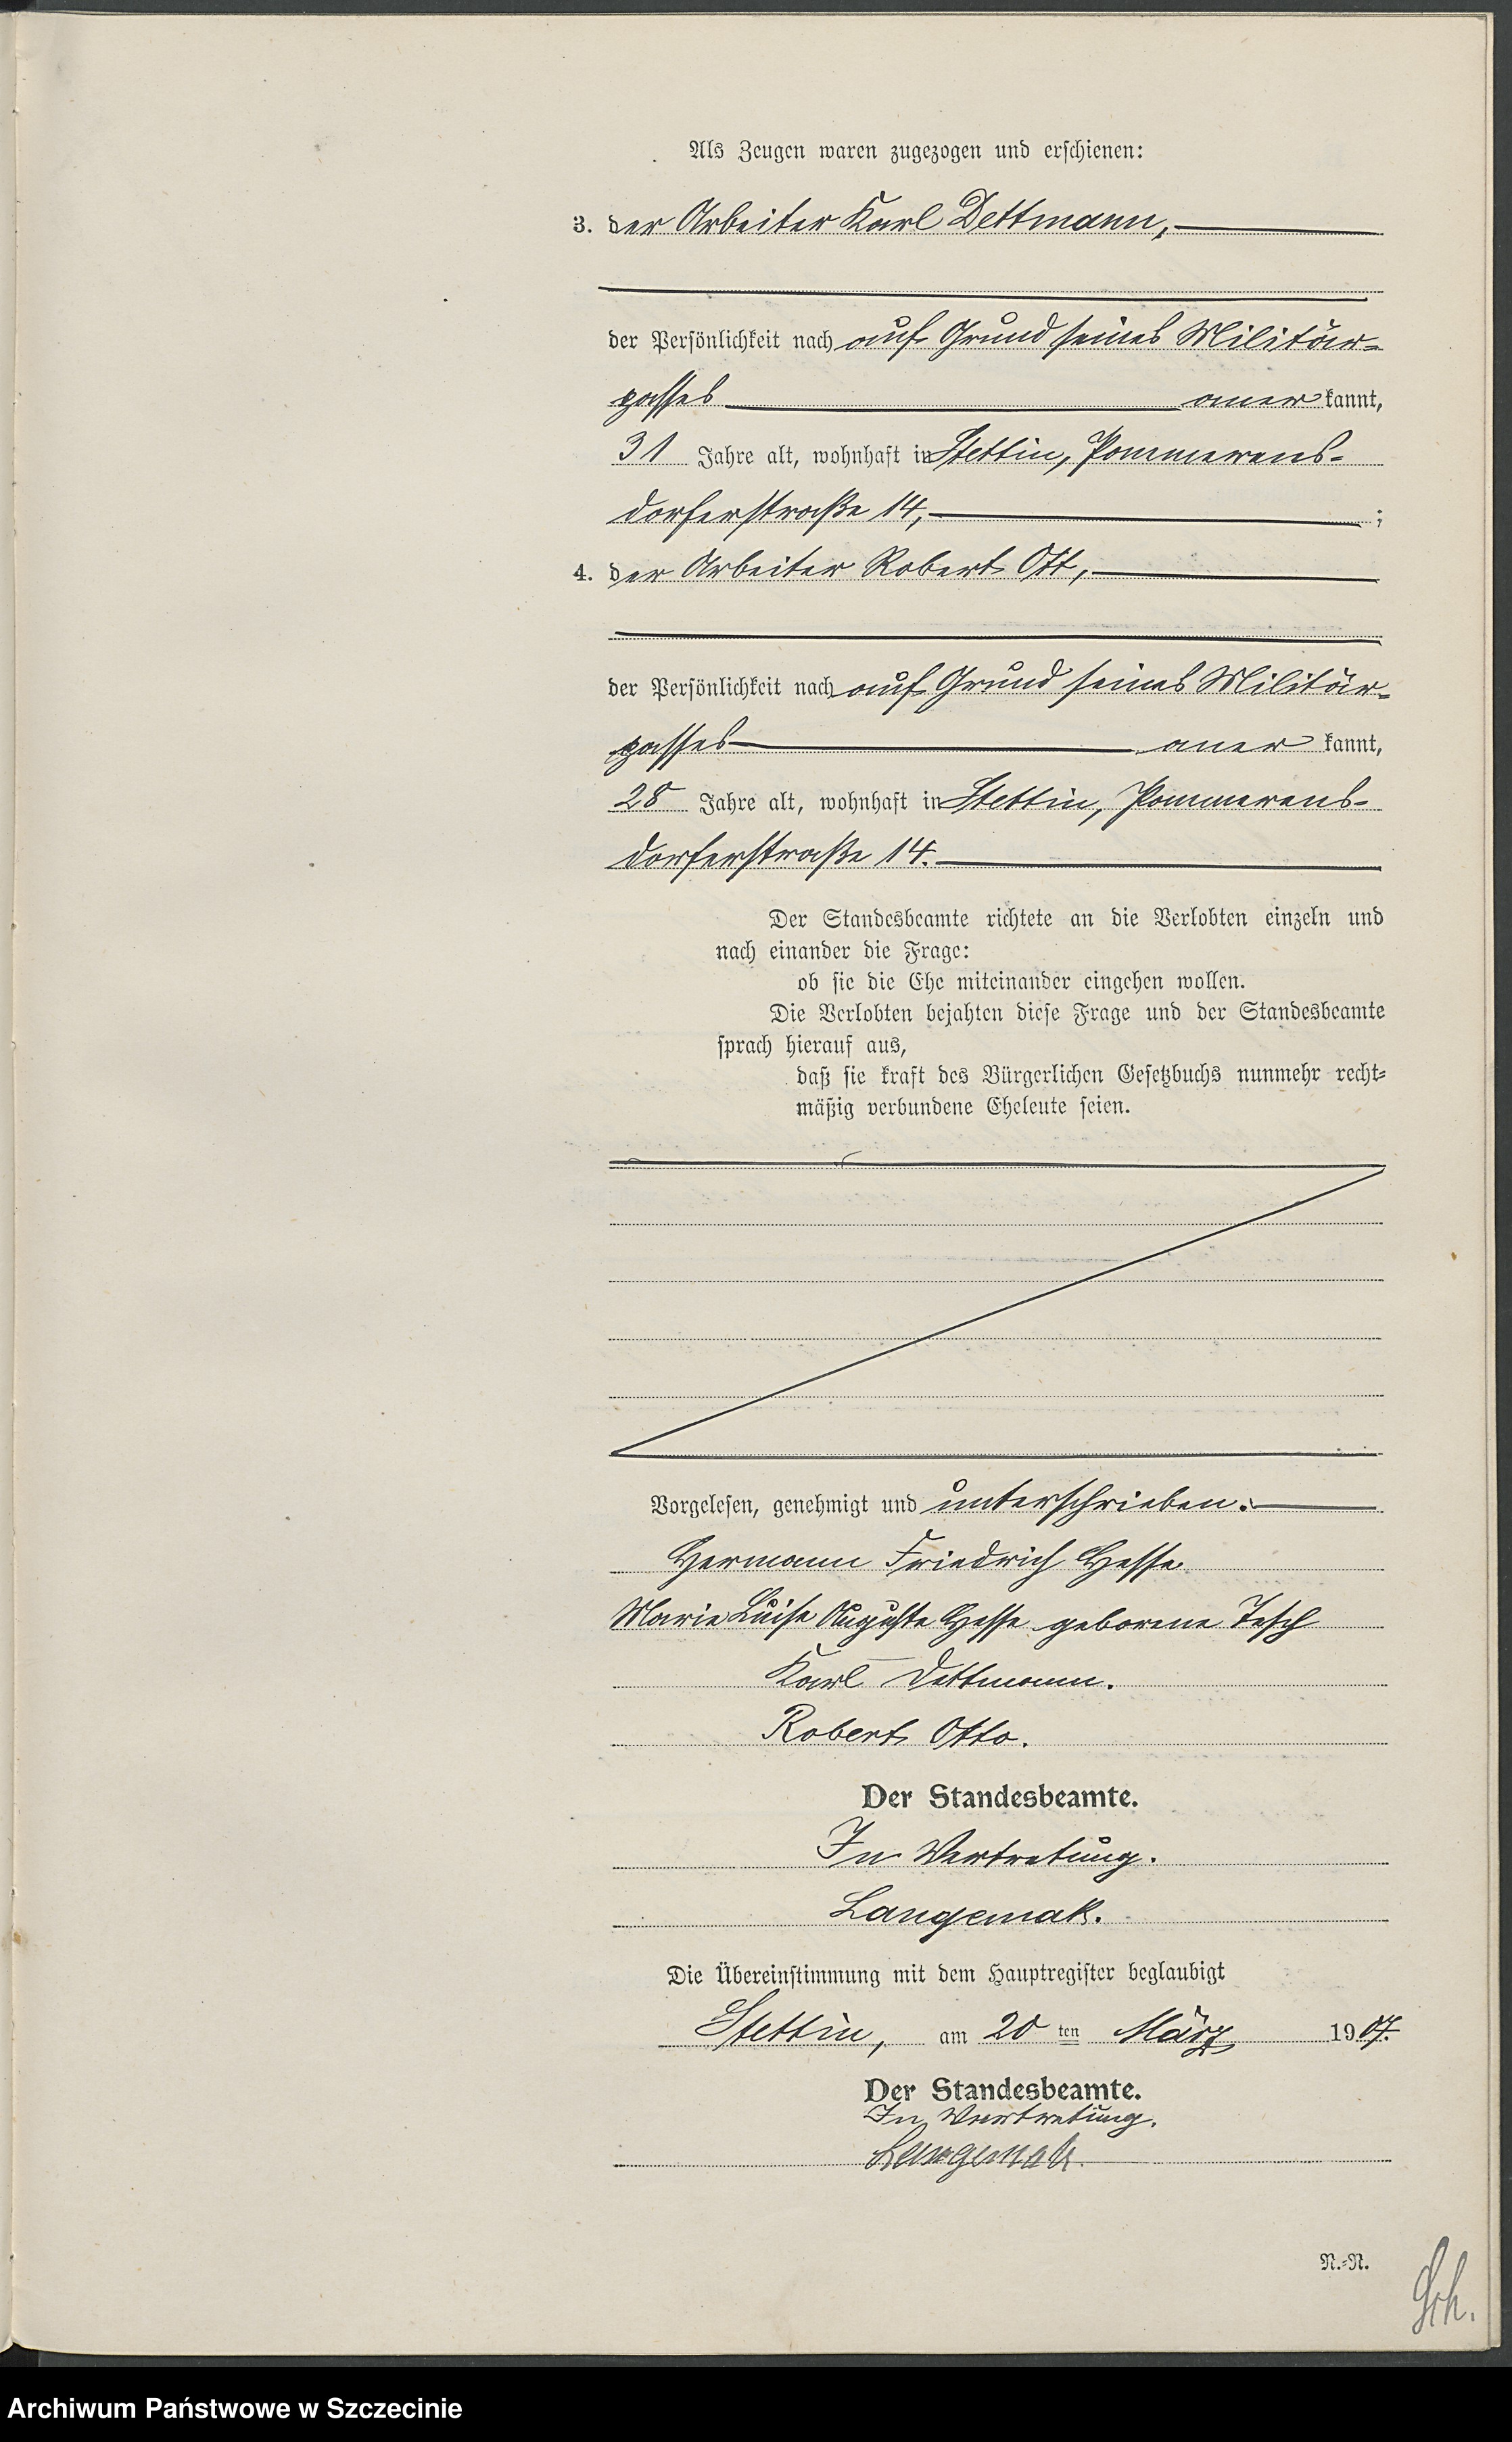 Als Zeugen waren zugezogen und erschienen:
3. der Arbeiter Karl Dettmann,
der Persönlichkeit nach auf Grund seines Militär-
passes anerkannt,
31 Jahre alt, wohnhaft in Stettin, Pommerens-
dorferstraße 14, ;
4. der Arbeiter Robert Ott,
der Persönlichkeit nach auf Grund seines Militär-
passes anerkannt,
28 Jahre alt, wohnhaft in Stettin, Pommerens-
dorferstraße 14.
Der Standesbeamte richtete an die Verlobten einzeln und
nach einander die Frage:
ob sie die Ehe miteinander eingehen wollen.
Die Verlobten bejahten diese Frage und der Standesbeamte
sprach hierauf aus,
daß sie kraft des Bürgerlichen Gesetzbuchs nunmehr recht-
mäßig verbundene Eheleute seien.
Vorgelesen, genehmigt und unterschrieben.
Hermann Friedrich Hesse
Marie Luise Auguste Hesse geborene Tesch
Karl Dettmann.
Robert Otto.
Der Standesbeamte.
In Vertretung.
Langemak.
Die Übereinstimmung mit dem Hauptregister beglaubigt
Stettin, am 20 ten März 1907.
Der Standesbeamte.
In Vertretung.
Langemak.
N.-N.
Sch.
Archiwum Państwowe w Szczecinie